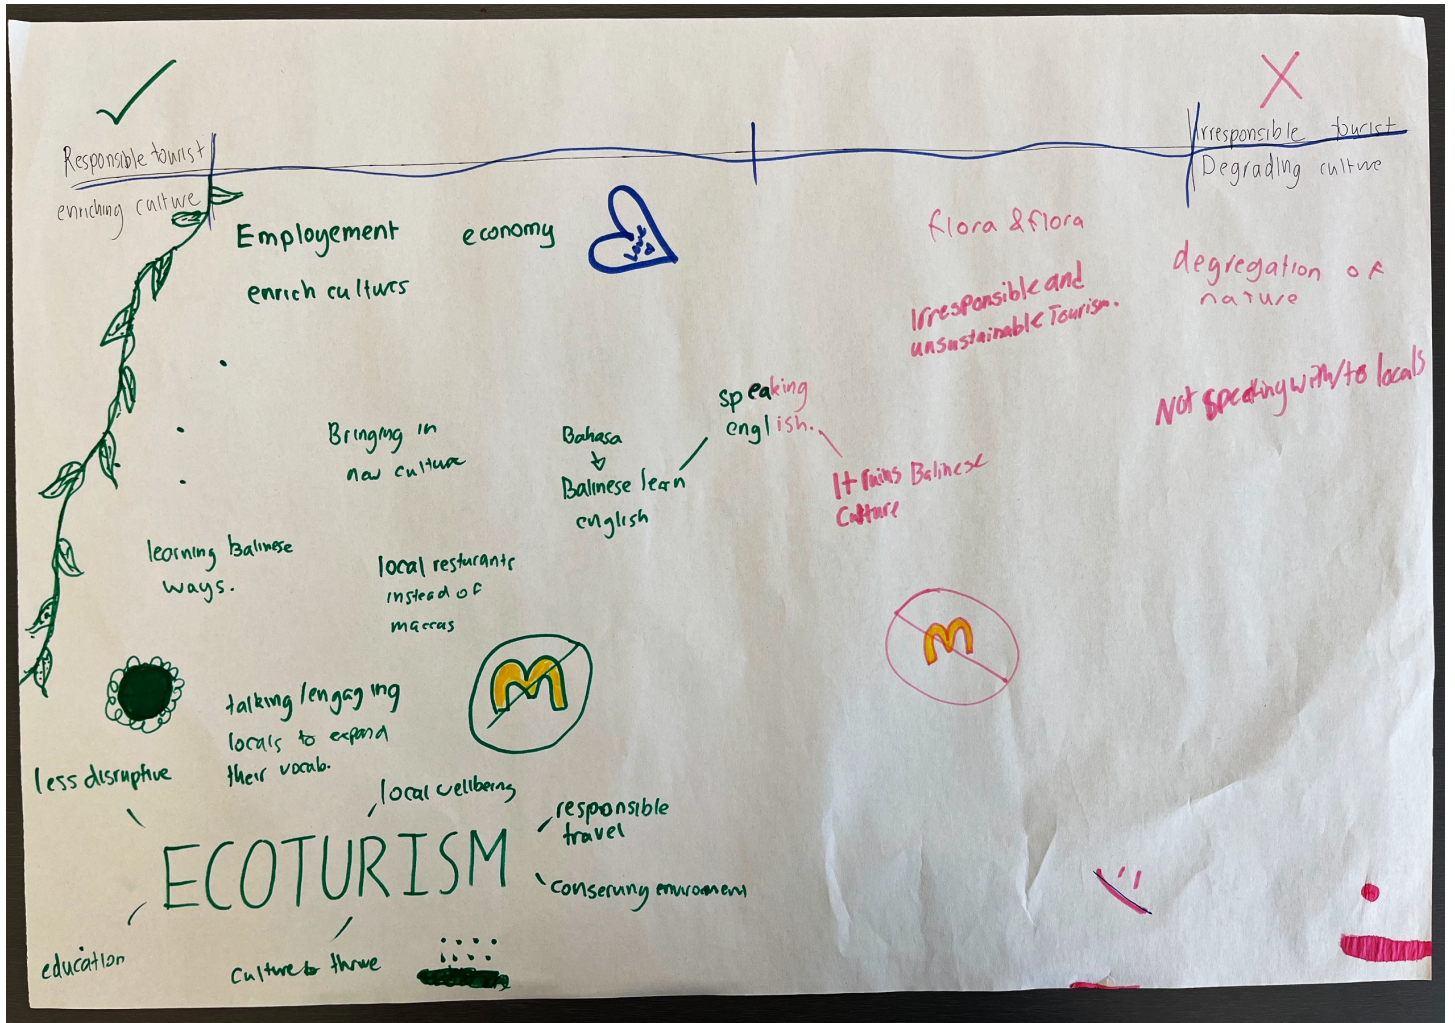 Responsible tourist
enriching culture
Irresponsible tourist
Degrading culture
Employement economy
enrich cultures
flora & flora
degregation of
nature
Irresponsible and
unsustainable Tourism.
Not speaking with/to locals
speaking
english.
Bringing in
new culture
Bahasa
Balinese learn
english
It ruins Balinese
Culture
learning Balinese
ways.
local resturants
instead of
maccas
M
M
talking/engaging
locals to expand
their vocab.
less disruptive
local wellbeing
responsible
travel
ECOTURISM
conserving enviroment
education
culture to thrive